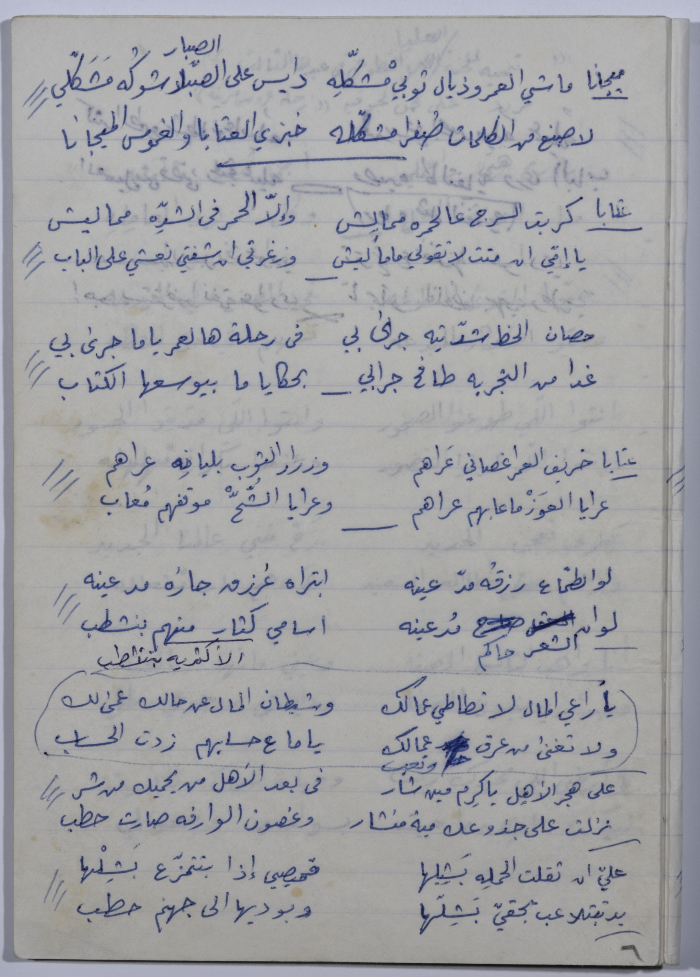 الصبار
ميجانا ماشي العمر وذيال ثوبي مْشكّله دايس على الصبّار شوكُه مَشَكّلي
لاصنع من الكلمات ضُفرا مشكّله خبزي العتابا والغموس الميجانا
عتابا كربت السرج عالحمره مماليش وإلّا الحمر في الشدّه مماليش
يا إختي ان متت لا تقولي ماماليش وزغرتي ان شفتي نعشي على الباب
حصان الحظ شدّاتيه جرى بي في رحلة هالعمر ياما جرى بي
غدا من التجربه طافح جرابي بحكايا ما بيوسعها الكتاب
عتابا خريف العمر اغصاني عَراهم وزرار الثوب بليا فِه عراهم
عرايا العَوَزْ ما عابهم عراهم وعرايا الشُحّْ موقفهم مْعاب
لو الطمّاع رزقُه مدّ عينه ابتراه عَرزق جارُه مد عينه
لو ان الشعر حاكم مْدعينه اسامي كْتار منهم بنشطب
الأكثريه بتنشطب
يا راعي المال لا تطاطي عمالك وشيطان المال عن حالك عمى لك
ولا تغنى من عرق وتعب عمالك ياما ع حسابهم زدت الحساب
على هجر الأهل يا كرم مين شار في بعد الأهل من يحميك من شر
نزلت على جذوعك مية منشار وغصون الوارفه صارت حطب
عليّ ان ثقلت الحمله بَشيلها قميصي إذا بتتمزّع بَشِلْها
يد بتتلاعب بحقيّ بَشِلّها وبوديها الى جهنم حطب
٦